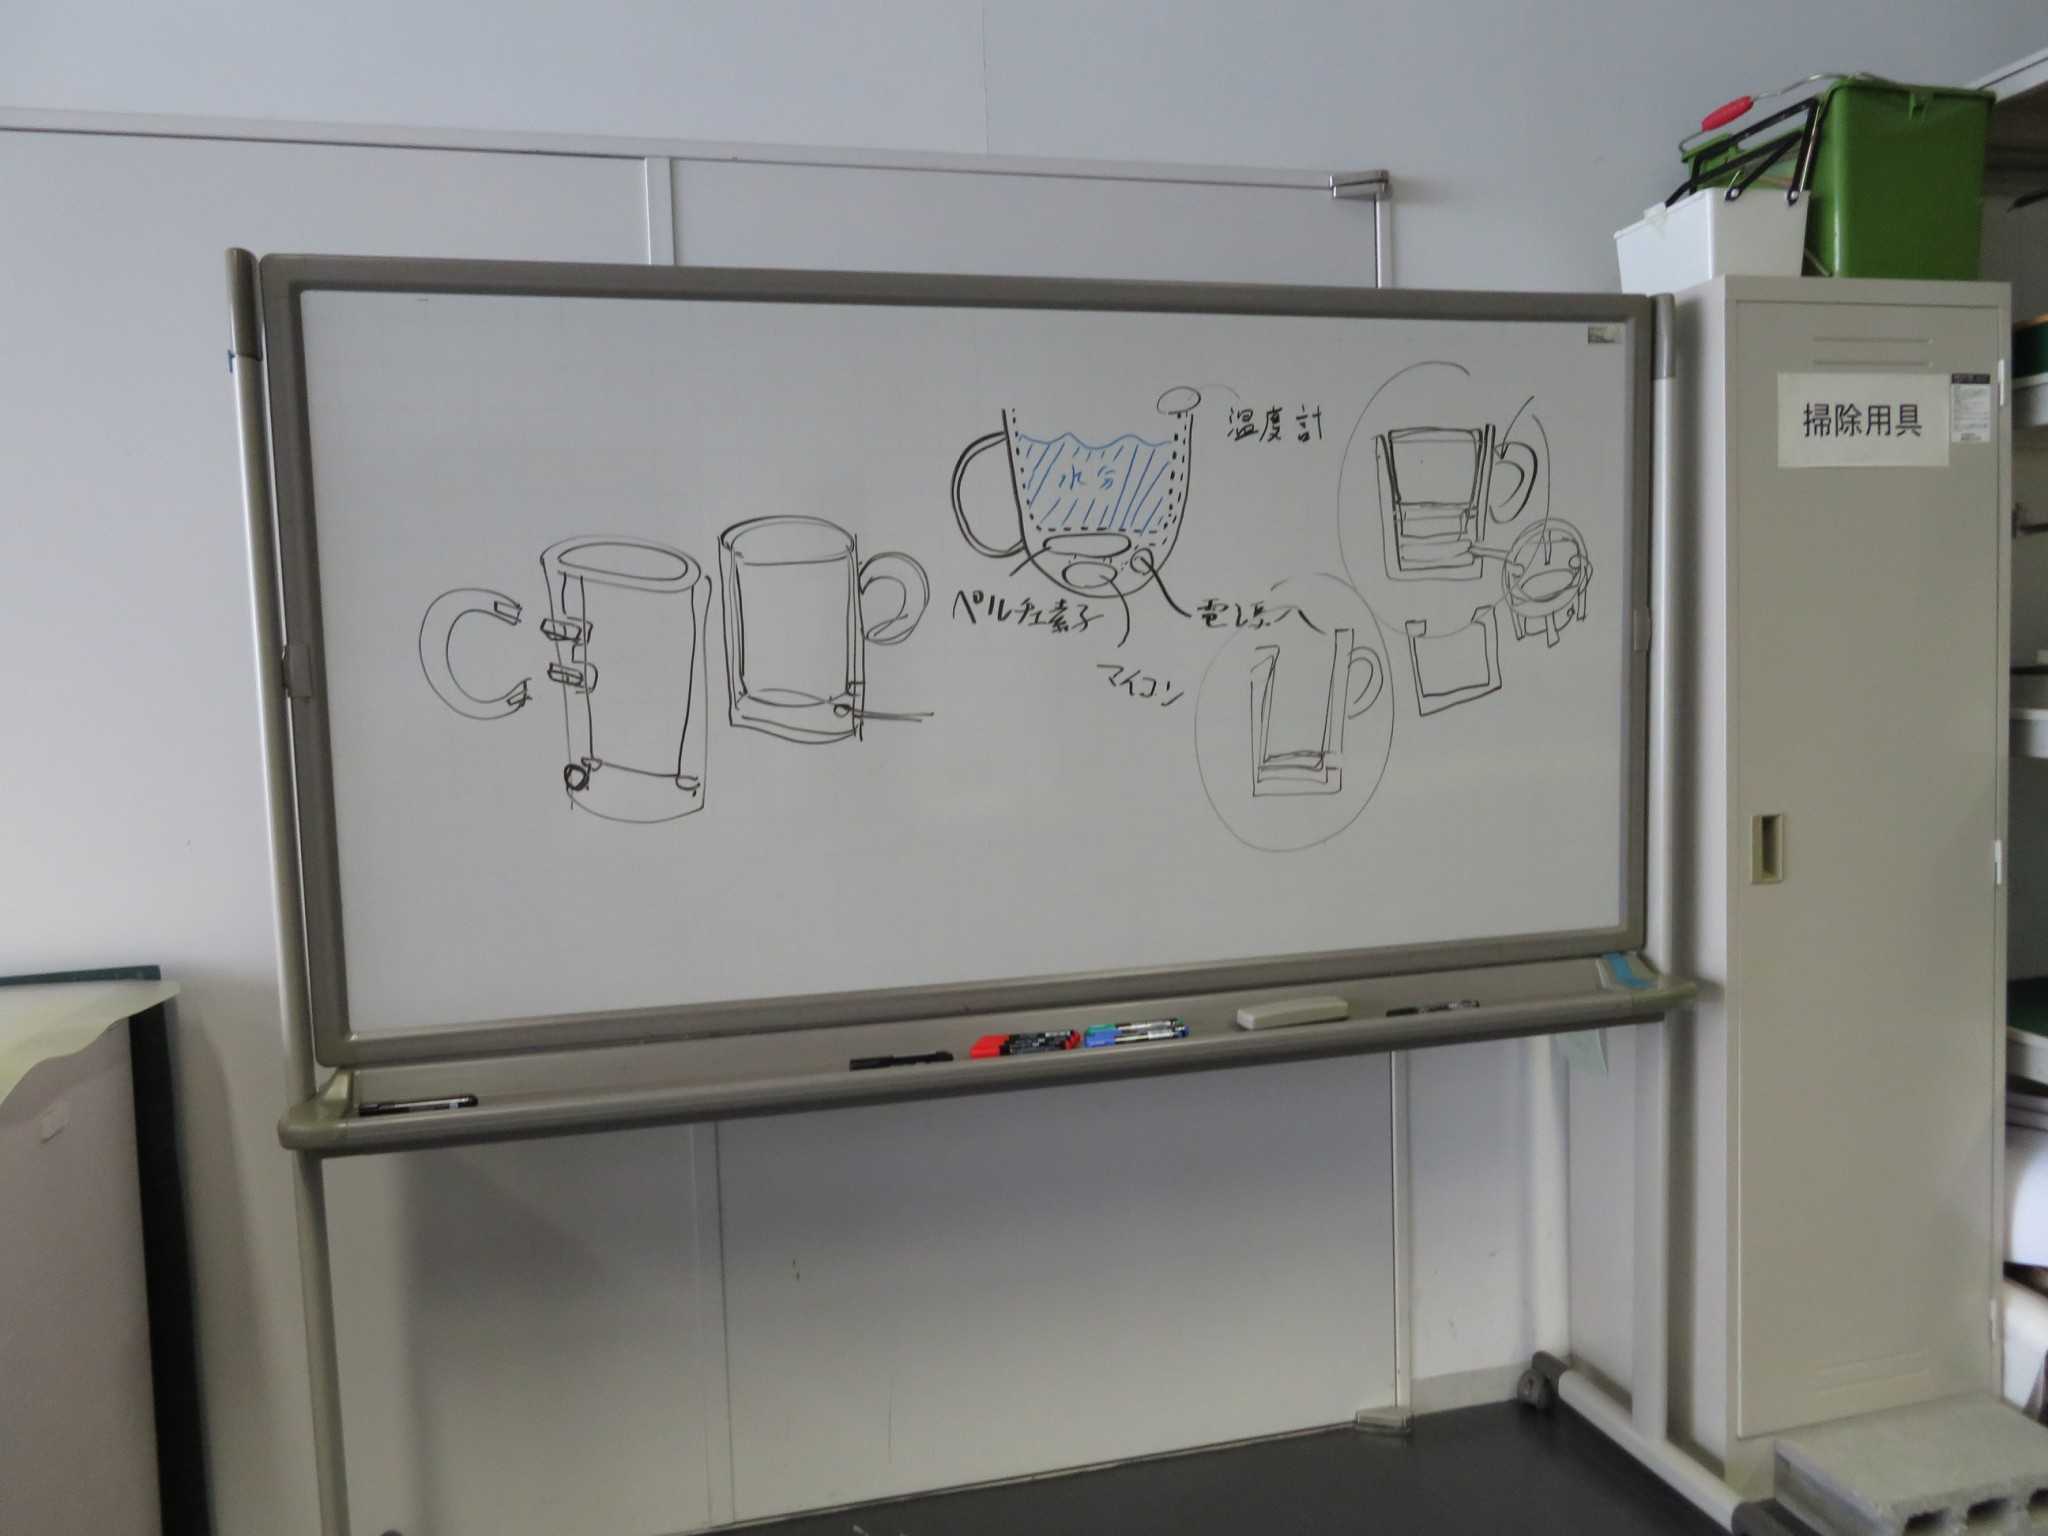 温度計
水分
ペルチェ素子
電源へ
マイコン
掃除用具